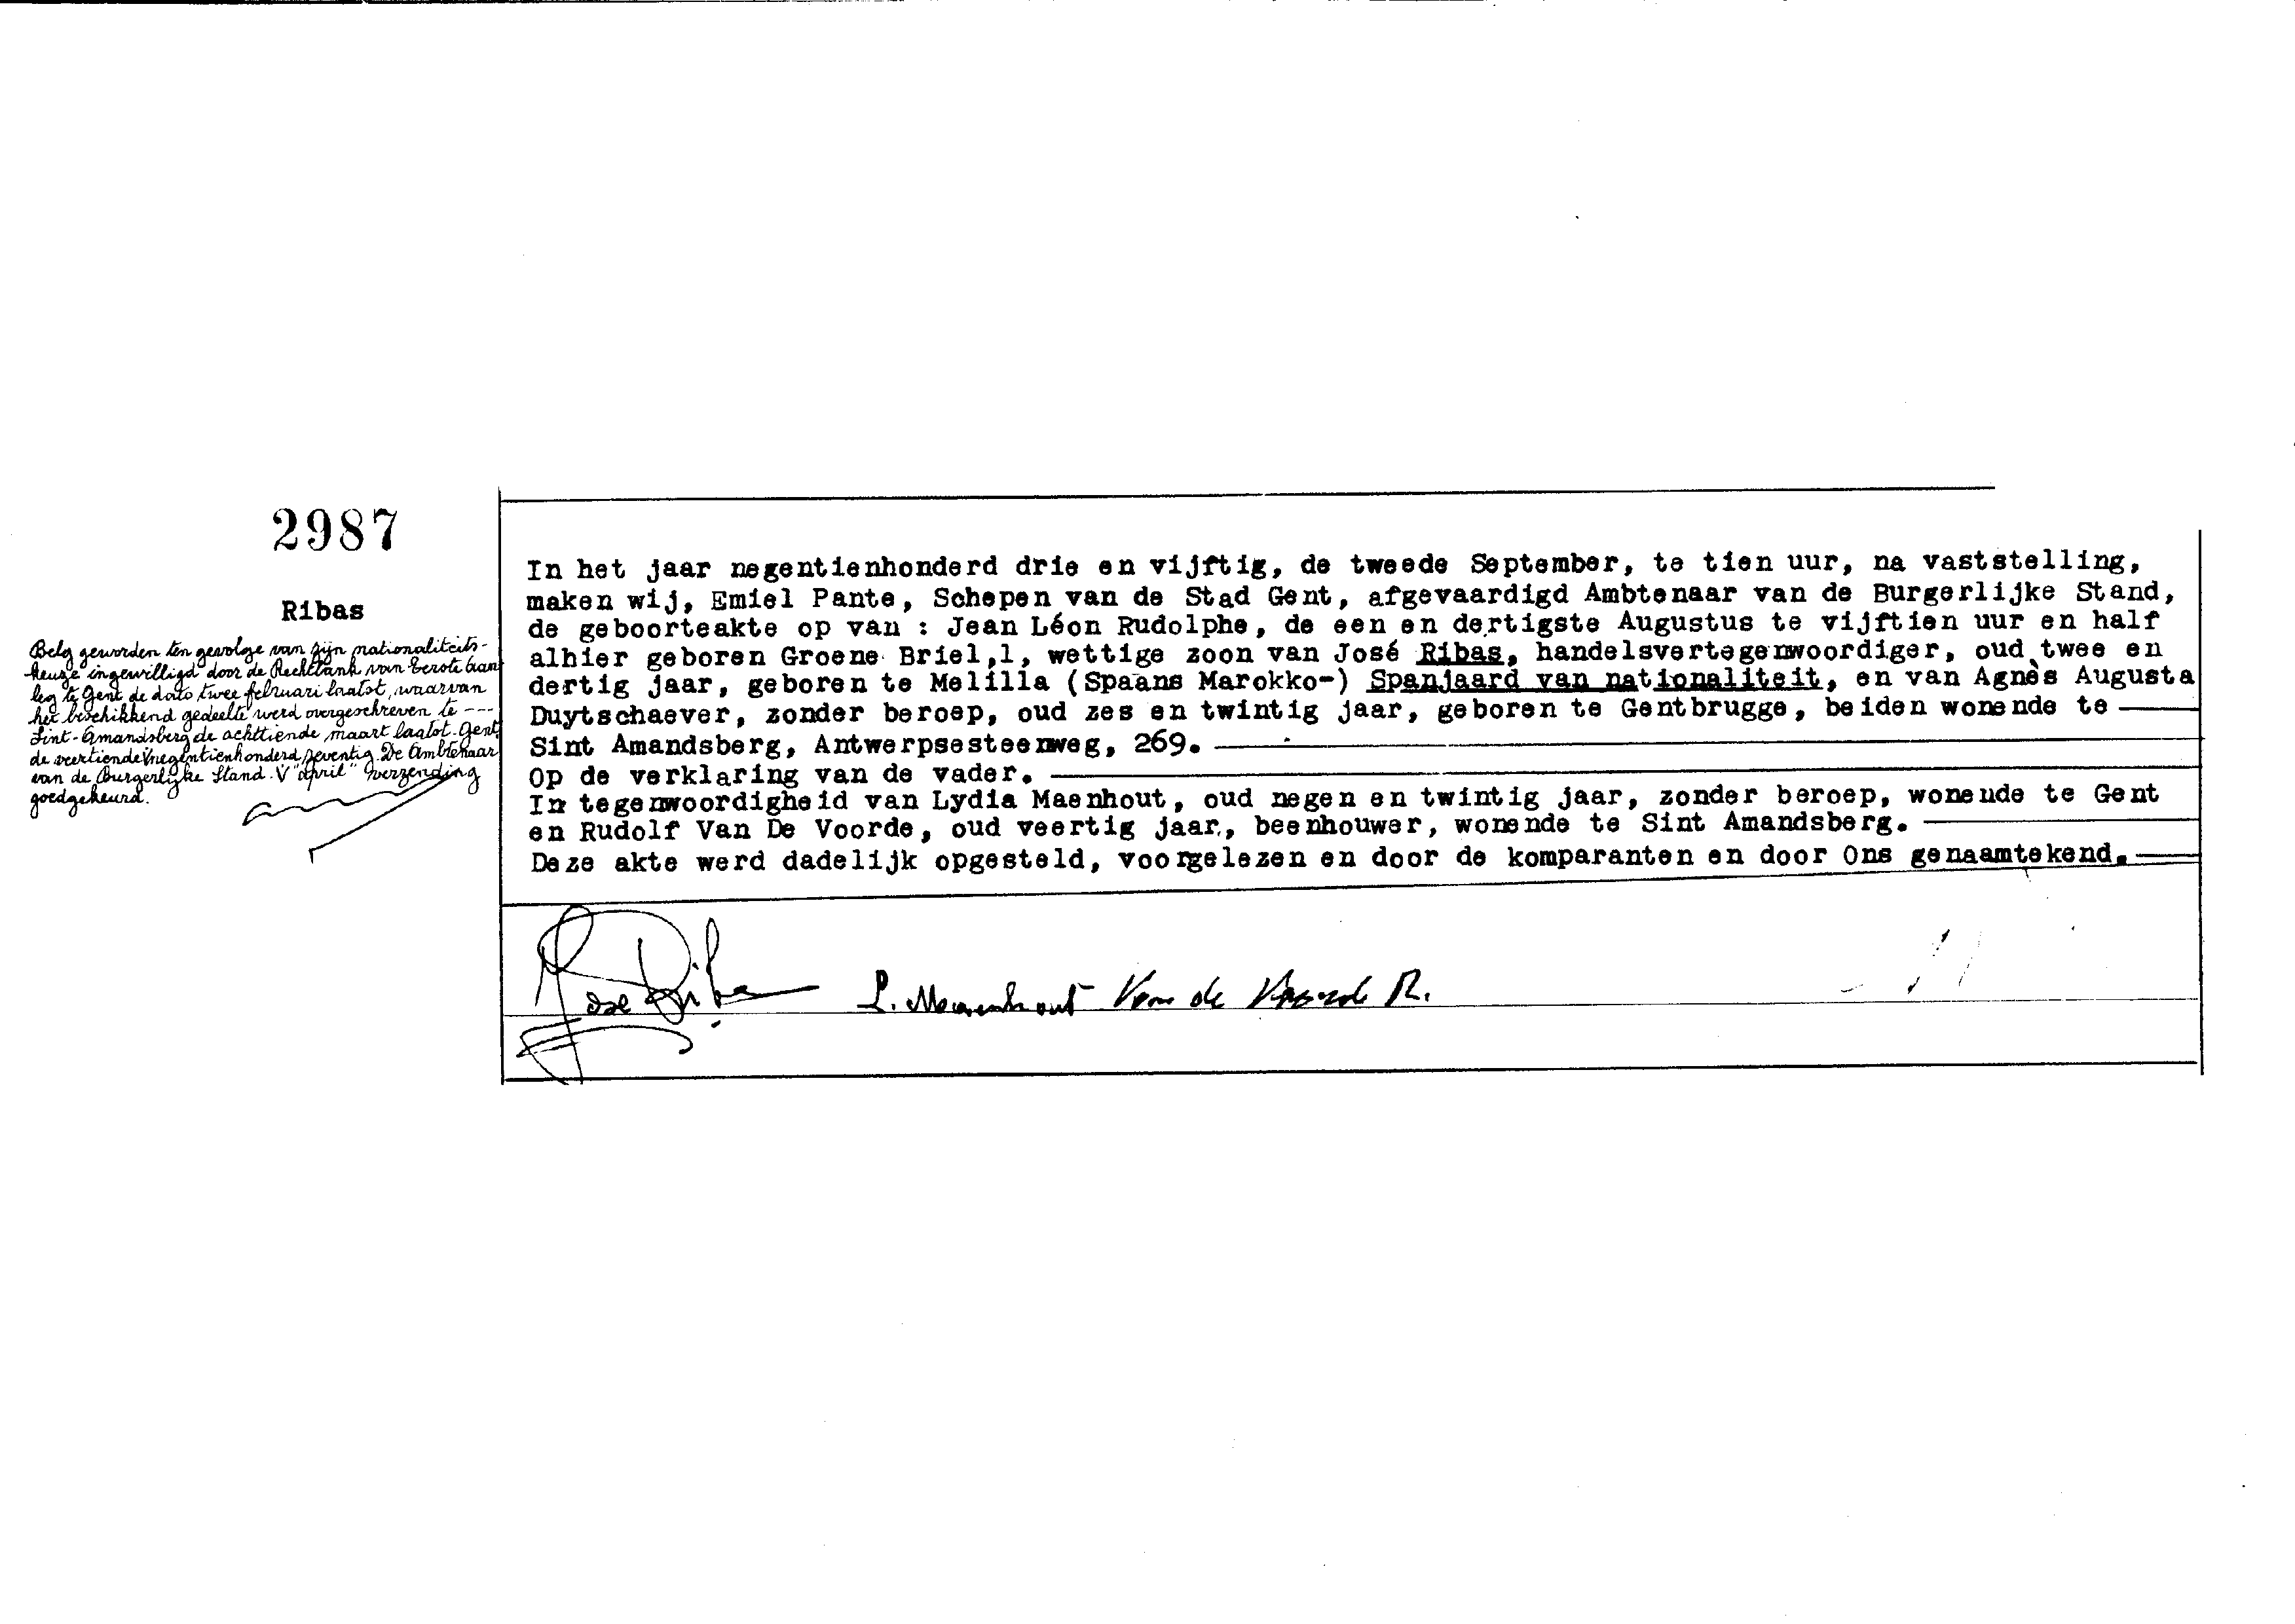 2987
Ribas
Belg geworden ten gevolge van zijn nationaliteits-
keuze ingewilligd door de Rechtbank van Eerste Aan
leg te Gent de dato twee februari laatst, waarvan
het beschikkend gedeelte werd overgeschreven te ---
Sint-Amandsberg de achttiende maart laatst. Gent
de veertiende V negentienhonderd zeventig. De Ambtenaar
van de Burgerlijke Stand. V "april" verzending
goedgekeurd.
In het jaar negentienhonderd drie en vijftig, de tweede September, te tien uur, na vaststelling,
maken wij, Emiel Pante, Schepen van de Stad Gent, afgevaardigd Ambtenaar van de Burgerlijke Stand,
de geboorteakte op van : Jean Léon Rudolphe, de een en dertigste Augustus te vijftien uur en half
alhier geboren Groene Briel,1, wettige zoon van José Ribas, handelsvertegenwoordiger, oud twee en
dertig jaar, geboren te Melilla (Spaans Marokko-) Spanjaard van nationaliteit, en van Agnès Augusta
Duytschaever, zonder beroep, oud zes en twintig jaar, geboren te Gentbrugge, beiden wonende te
Sint Amandsberg, Antwerpsesteenweg, 269.
Op de verklaring van de vader.
In tegenwoordigheid van Lydia Maenhout, oud negen en twintig jaar, zonder beroep, wonende te Gent
en Rudolf Van De Voorde, oud veertig jaar, beenhouwer, wonende te Sint Amandsberg.
Deze akte werd dadelijk opgesteld, voorgelezen en door de komparanten en door Ons genaamtekend.
Jose Ribas L. Maenhout Van de Voorde R.